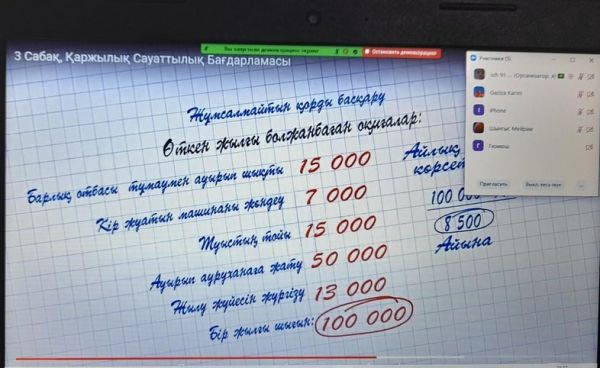 3 Сабақ, Қаржылық Сауаттылық Бағдарламасы
Вы запустили демонстрацию экрана
Остановить демонстрацию
Участники (5)
(Организатор, я)
Gaziza Karim
iPhone
Шынғыс Мейрам
Гүлжан
Пригласить
Выкл. весь звук
Жұмсалмайтын қорды басқару
Өткен жылғы болжанбаған оқиғалар:
Барлық отбасы тұмаумен ауырып шықты 15 000
Кір жуатын машинаны жөндеу 7 000
Туыстың тойы 15 000
Ауырып ауруханаға жату 50 000
Жылу жүйесін жүргізу 13 000
Бір жылғы шығын: 100 000
Айлық
көрсет
100 00
8 500
Айына